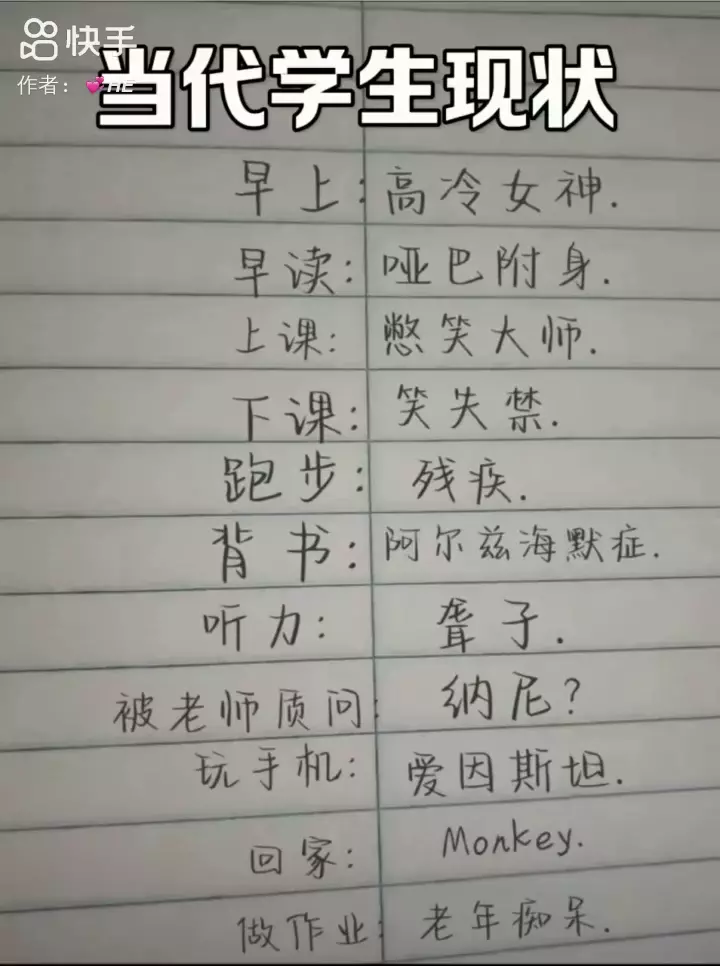 快手
作者：💕ΠE
当代学生现状
早上：高冷女神.
早读：哑巴附身.
上课：憋笑大师.
下课：笑失禁.
跑步：残疾.
背书：阿尔兹海默症.
听力：聋子.
被老师质问：纳尼？
玩手机：爱因斯坦.
回家：Monkey.
做作业：老年痴呆.